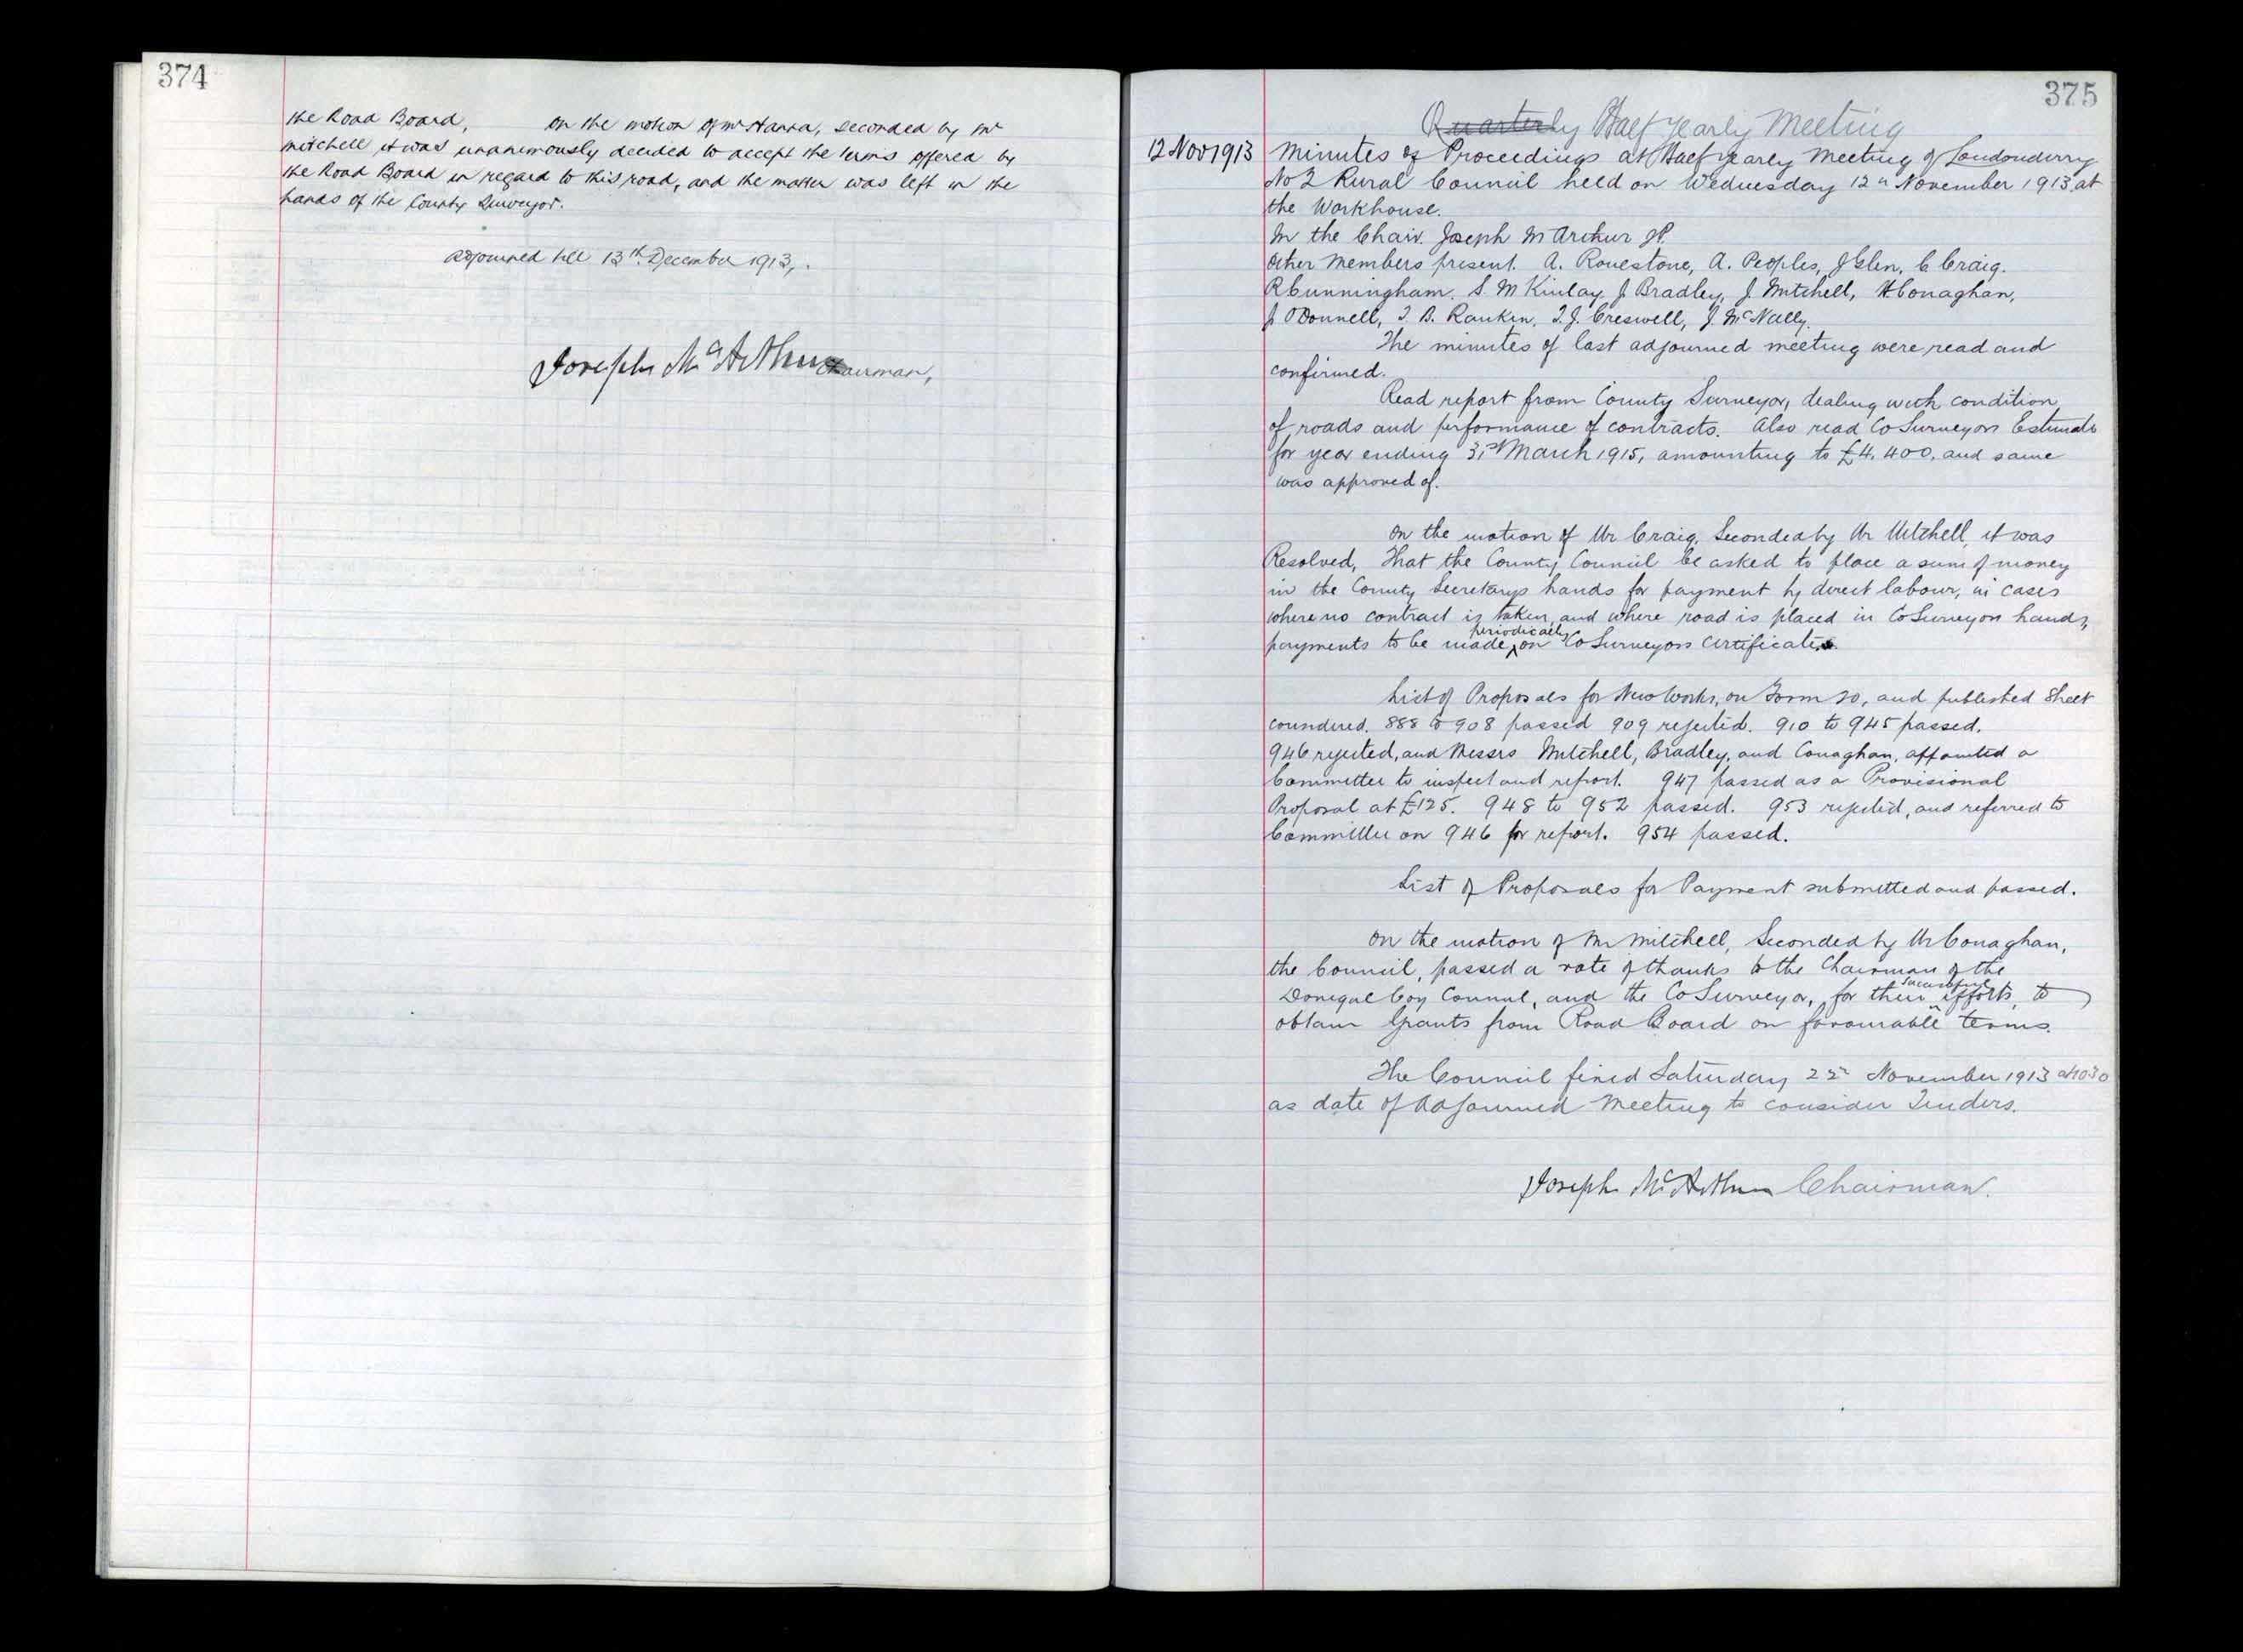 374
the Road Board, On the motion of Mr Hanna, seconded by Mr
Mitchell it was unanimously decided to accept the terms offered by
the Road Board in regard to this road, and the matter was left in the
hands of the County Surveyor.
Adjourned till 13th December 1913,.
Joseph McArthur Chairman,
375
Quarterly Half yearly Meeting
12 Nov 1913
Minutes of Proceedings at Half yearly Meeting of Londonderry
No 2 Rural Council held on Wednesday 12th November 1913 at
the Workhouse.
In the Chair. Joseph McArthur JP.
Other Members present. A. Roulstone, A. Peoples, J Glen, C Craig.
R Cunningham. S. McKinlay J Bradley, J. Mitchell, H Conaghan,
J O'Donnell, T. B. Rankin, T. J. Creswell, J. McNulty.
The minutes of last adjourned meeting were read and
confirmed.
Read report from County Surveyor, dealing with condition
of roads and performance of contracts. Also read Co Surveyors Estimate
for year ending 31st March 1915, amounting to £4,400, and same
was approved of.
On the motion of Mr Craig, Seconded by Mr Mitchell, it was
Resolved, That the County Council be asked to place a sum of money
in the County Secretarys hands for payment by direct labour, in cases
where no contract is taken, and where road is placed in Co Surveyors hands,
payments to be made periodically on Co Surveyors Certificates.
List of Proposals for New Works, on Form 20, and published Sheet
considered. 888 to 908 passed 909 rejected. 910 to 945 passed.
946 rejected, and Messrs Mitchell, Bradley, and Conaghan, appointed a
Committee to inspect and report. 947 passed as a Provisional
Proposal at £125. 948 to 952 passed. 953 rejected, and referred to
Committee on 946 for report. 954 passed.
List of Proposals for Payment submitted and passed.
On the motion of Mr Mitchell, Seconded by Mr Conaghan,
the Council, passed a vote of thanks to the Chairman of the
Donegal Coy Council, and the Co Surveyor, for their successful efforts, to
obtain Grants from Road Board on favourable terms.
The Council fixed Saturday 22nd November 1913 at 10 30
as date of Adjourned Meeting to consider Tenders.
Joseph McArthur Chairman.